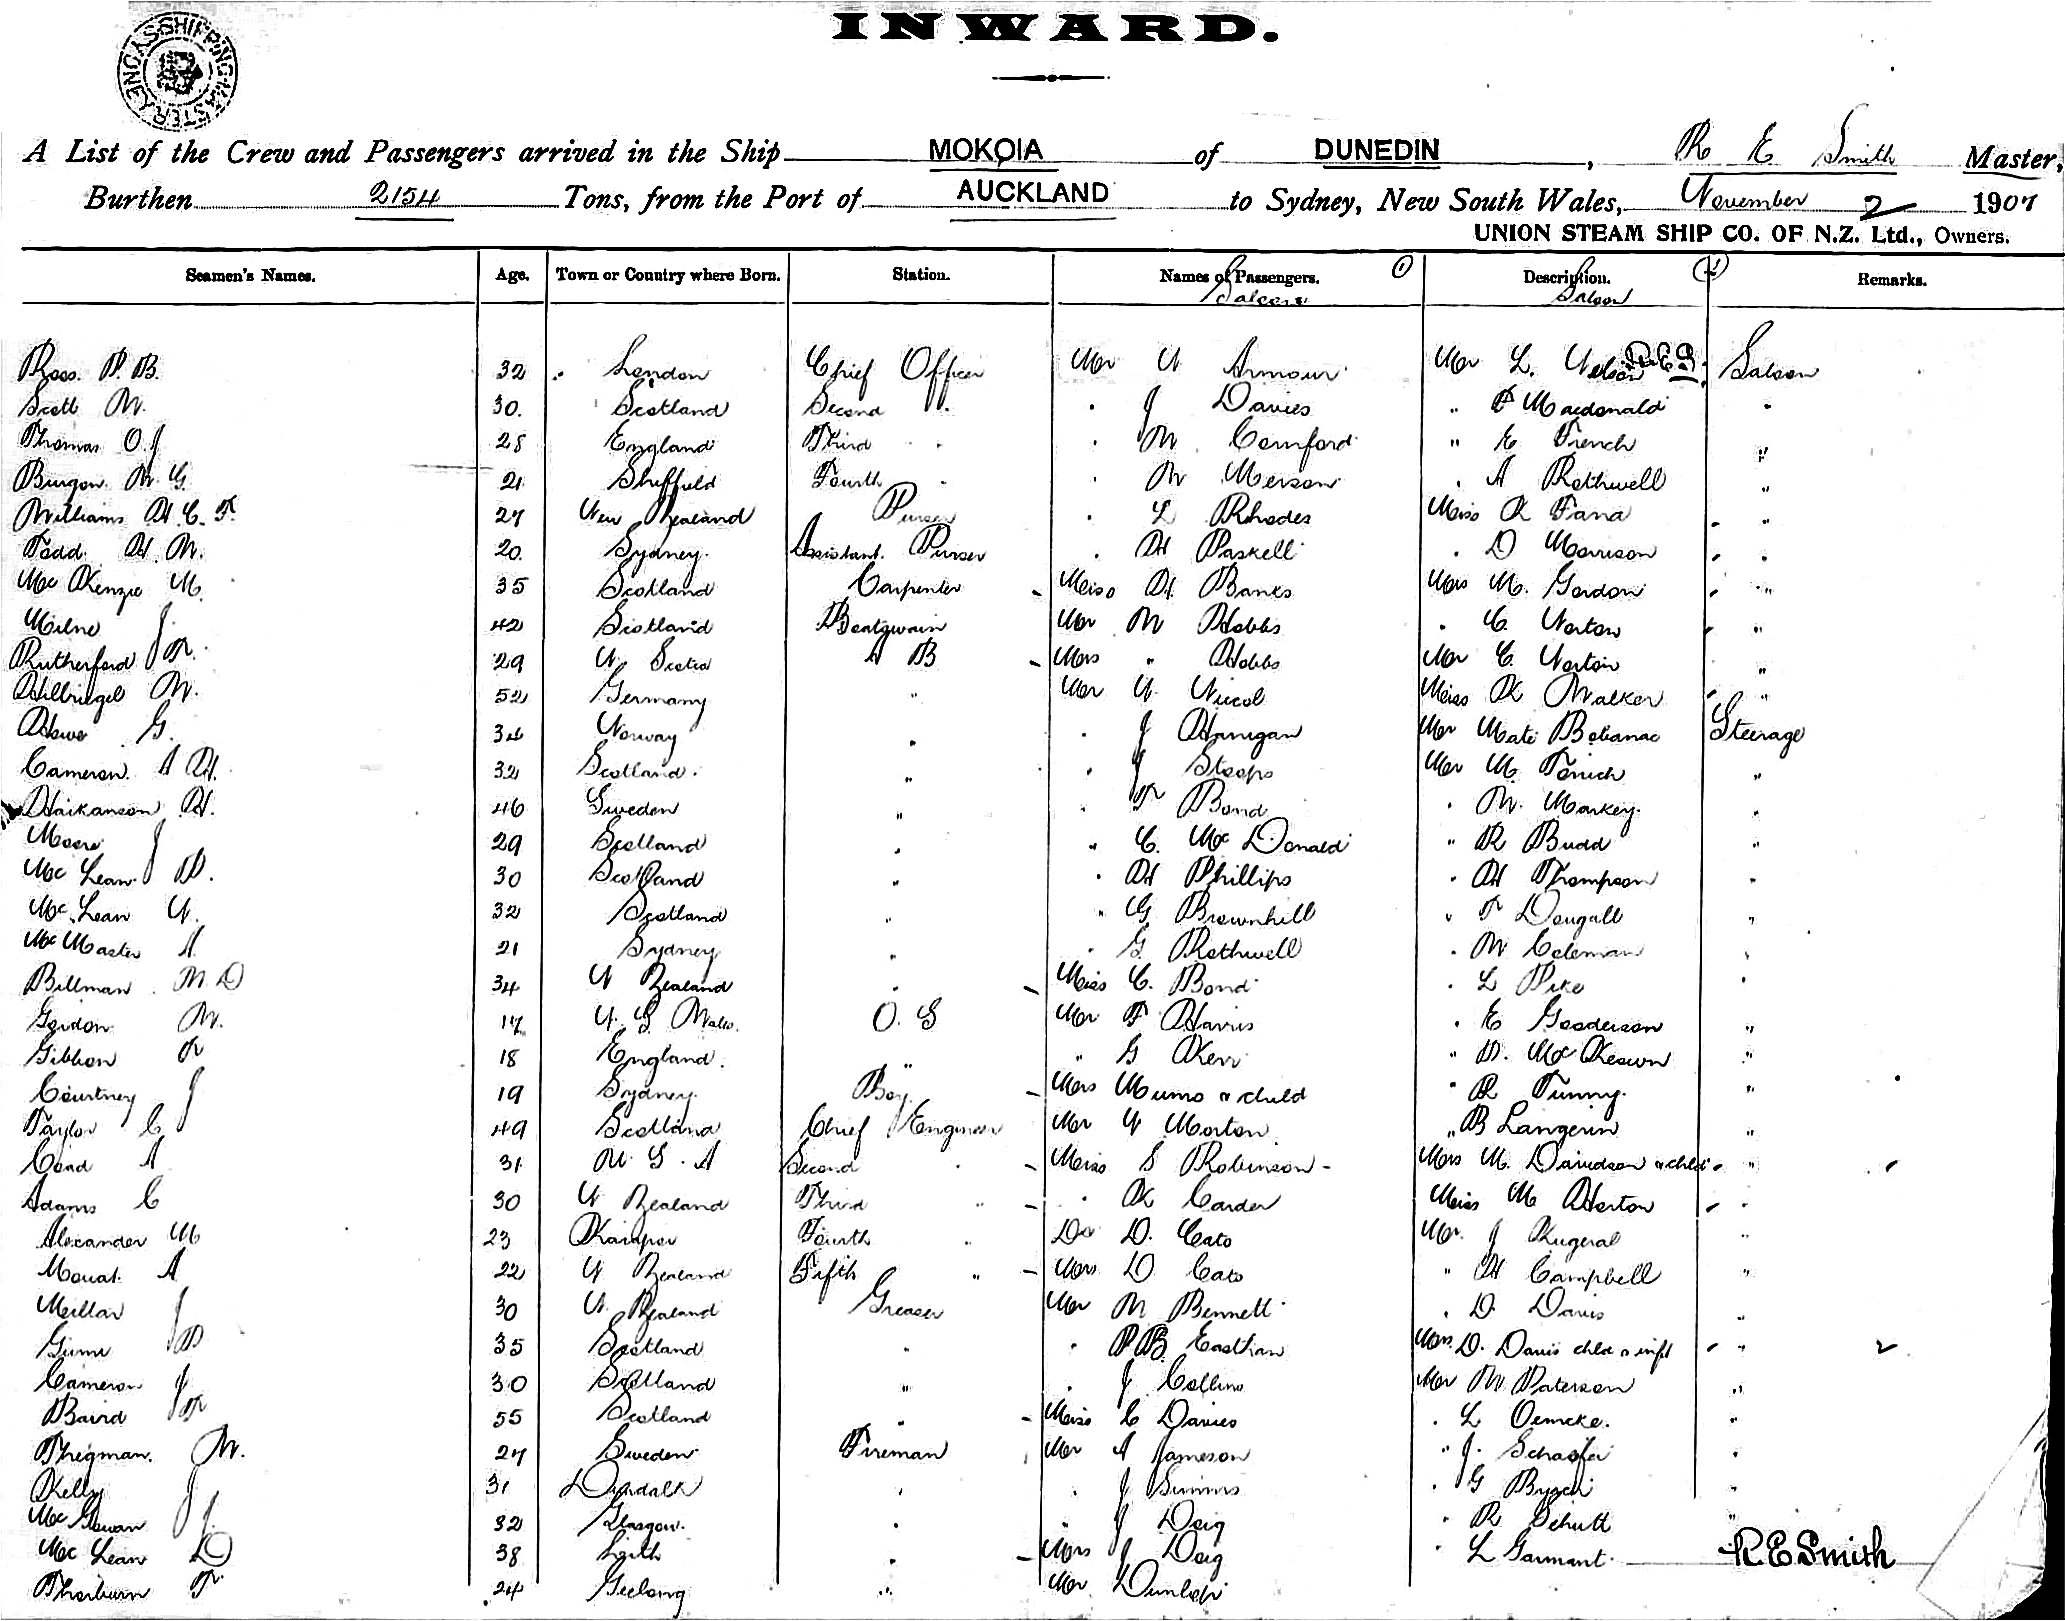 INWARD.
SHIPPING MASTER SYDNEY
A List of the Crew and Passengers arrived in the Ship MOKOIA of DUNEDIN, R E Smith Master,
Burthen 2154 Tons, from the Port of AUCKLAND to Sydney, New South Wales, November 2 1907
UNION STEAM SHIP CO. OF N.Z. Ltd., Owners.
Seamen's Names. Age. Town or Country where Born. Station. Names of Passengers. Description. Remarks.
Saloon Saloon
Ross P. B. 32 London Chief Officer Mr W Armour Mr L. Nelson Saloon
Scott W. 30. Scotland Second " " J Davies " P Macdonald "
Thomas O J 28 England Third " " W Comford " E French "
Burgon W. G. 21 Sheffield Fourth " " W Merson " A Rothwell "
Williams H. C. F. 27 New Zealand Purser " L Rhodes Miss R Fana "
Todd H. W. 20. Sydney. Assistant Purser " H Paskell " D Morrison "
McKenzie M. 35 Scotland Carpenter Miss H. Banks Mrs M. Gordon "
Milne J 42 Scotland Boatswain Mr W Hobbs " C. Norton "
Rutherford F. 29 N. Scotia A B Mrs " Hobbs Mr C. Norton "
Hilbriegel W. 52 Germany " Mr N Nicol Miss K Walker "
Howe G. 34 Norway " " J Hanigan Mr Mate Bebanac Steerage
Cameron. A H. 32 Scotland. " " J Stoops Mr M. Tonich "
Haikanson H. 46 Sweden " " F Bond " W. Markey. "
Moore J 29 Scotland " " C. McDonald " R Budd "
McLean. D. 30 Scotland " " H Phillips " H Thompson "
McLean N. 32 Scotland " " G. Brownhill " F Dougall "
McMaster A. 21 Sydney " " G. Rothwell " W Coleman "
Billman W D 34 N Zealand " Miss C. Bond " L Pike "
Gordon W. 17 N. S. Wales. O. S Mr F Harris " E Gooderson "
Gibbon F 18 England. " " G Kerr " D. McKeown "
Courtney J 19 Sydney. Boy Mrs Mums & child " R Tunny. "
Taylor C 49 Scotland Chief Engineer Mr W Morton " B Langerin "
Coad A 31 U. S. A Second " Miss S Robinson " Mrs M. Davidson & child "
Adams C 30 N Zealand Third " " K Carder Miss M Horton "
Alexander M 23 Kaiapoi Fourth " Dr D. Cato Mr. J Kugeral "
Mouat A 22 N Zealand Fifth " Mrs D Cato " H Campbell "
Meillar J 30 N. Zealand Greaser Mr W Bennett " D. Davis "
D 35 Scotland " " P B. Eastham Mrs. D. Davis chld & inft "
Cameron J 30 Scotland " " J Collins Mr W Paterson "
Baird F 55 Scotland " Miss C Davies " L Oemcke. "
Thegman. W. 27 Sweden Fireman Mr A Jameson " J. Schaefer "
Kelly J 31 Dundalk " " J Simms " G
McGowan J. 32 Glasgow. " " J Doig " R Schutt "
McLean D 38 Leith " Mrs J Doig " L Garmant. R E Smith
Thorburn F 24 Geelong " Mr Dunlop